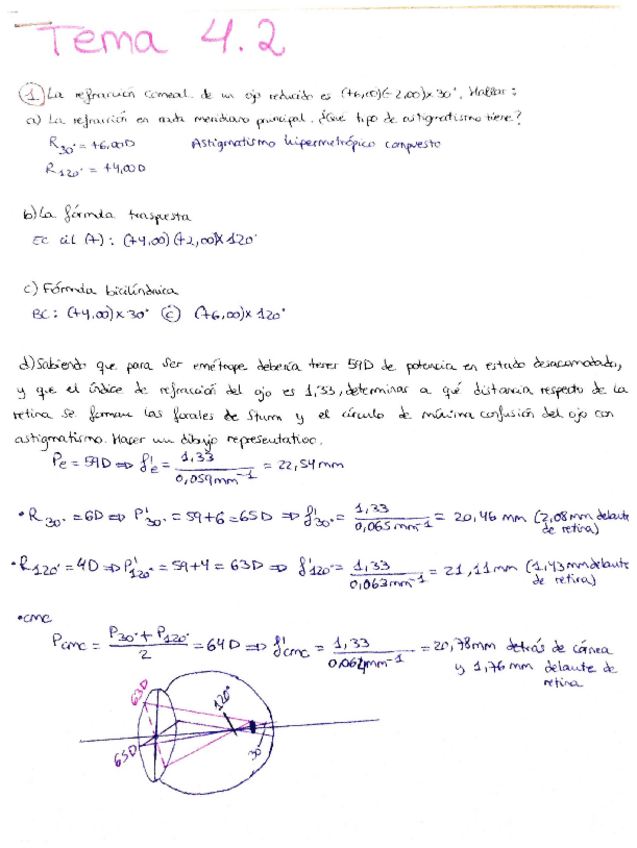 Tema 4.2
1. La refracción corneal de un ojo reducido es (+6,00)(-2,00)x30°. Hallar:
a) La refracción en cada meridiano principal. ¿Qué tipo de astigmatismo tiene?
R30° = +6,00D Astigmatismo hipermetrópico compuesto
R120° = +4,00D
b) La fórmula traspuesta
EC cil (+): (+4,00)(+2,00)x120°
c) Fórmula bicilíndrica
BC: (+4,00)x30° (c) (+6,00)x120°
d) Sabiendo que para ser emétrope debería tener 59D de potencia en estado desacomodado,
y que el índice de refracción del ojo es 1,33, determinar a qué distancia respecto de la
retina se forman las focales de Sturm y el círculo de mínima confusión del ojo con
astigmatismo. Hacer un dibujo representativo.
Pe = 59D ⇒ f'e = 1,33 / 0,059mm⁻¹ = 22,54mm
• R30° = 6D ⇒ P'30° = 59+6 = 65D ⇒ f'30° = 1,33 / 0,065mm⁻¹ = 20,46 mm (2,08mm delante
de retina)
• R120° = 4D ⇒ P'120° = 59+4 = 63D ⇒ f'120° = 1,33 / 0,063mm⁻¹ = 21,11mm (1,43mm delante
de retina)
• CMC
Pcmc = P30° + P120° / 2 = 64D ⇒ f'cmc = 1,33 / 0,064mm⁻¹ = 20,78mm detrás de córnea
y 1,76 mm delante de
retina
63D
120°
65D
30°